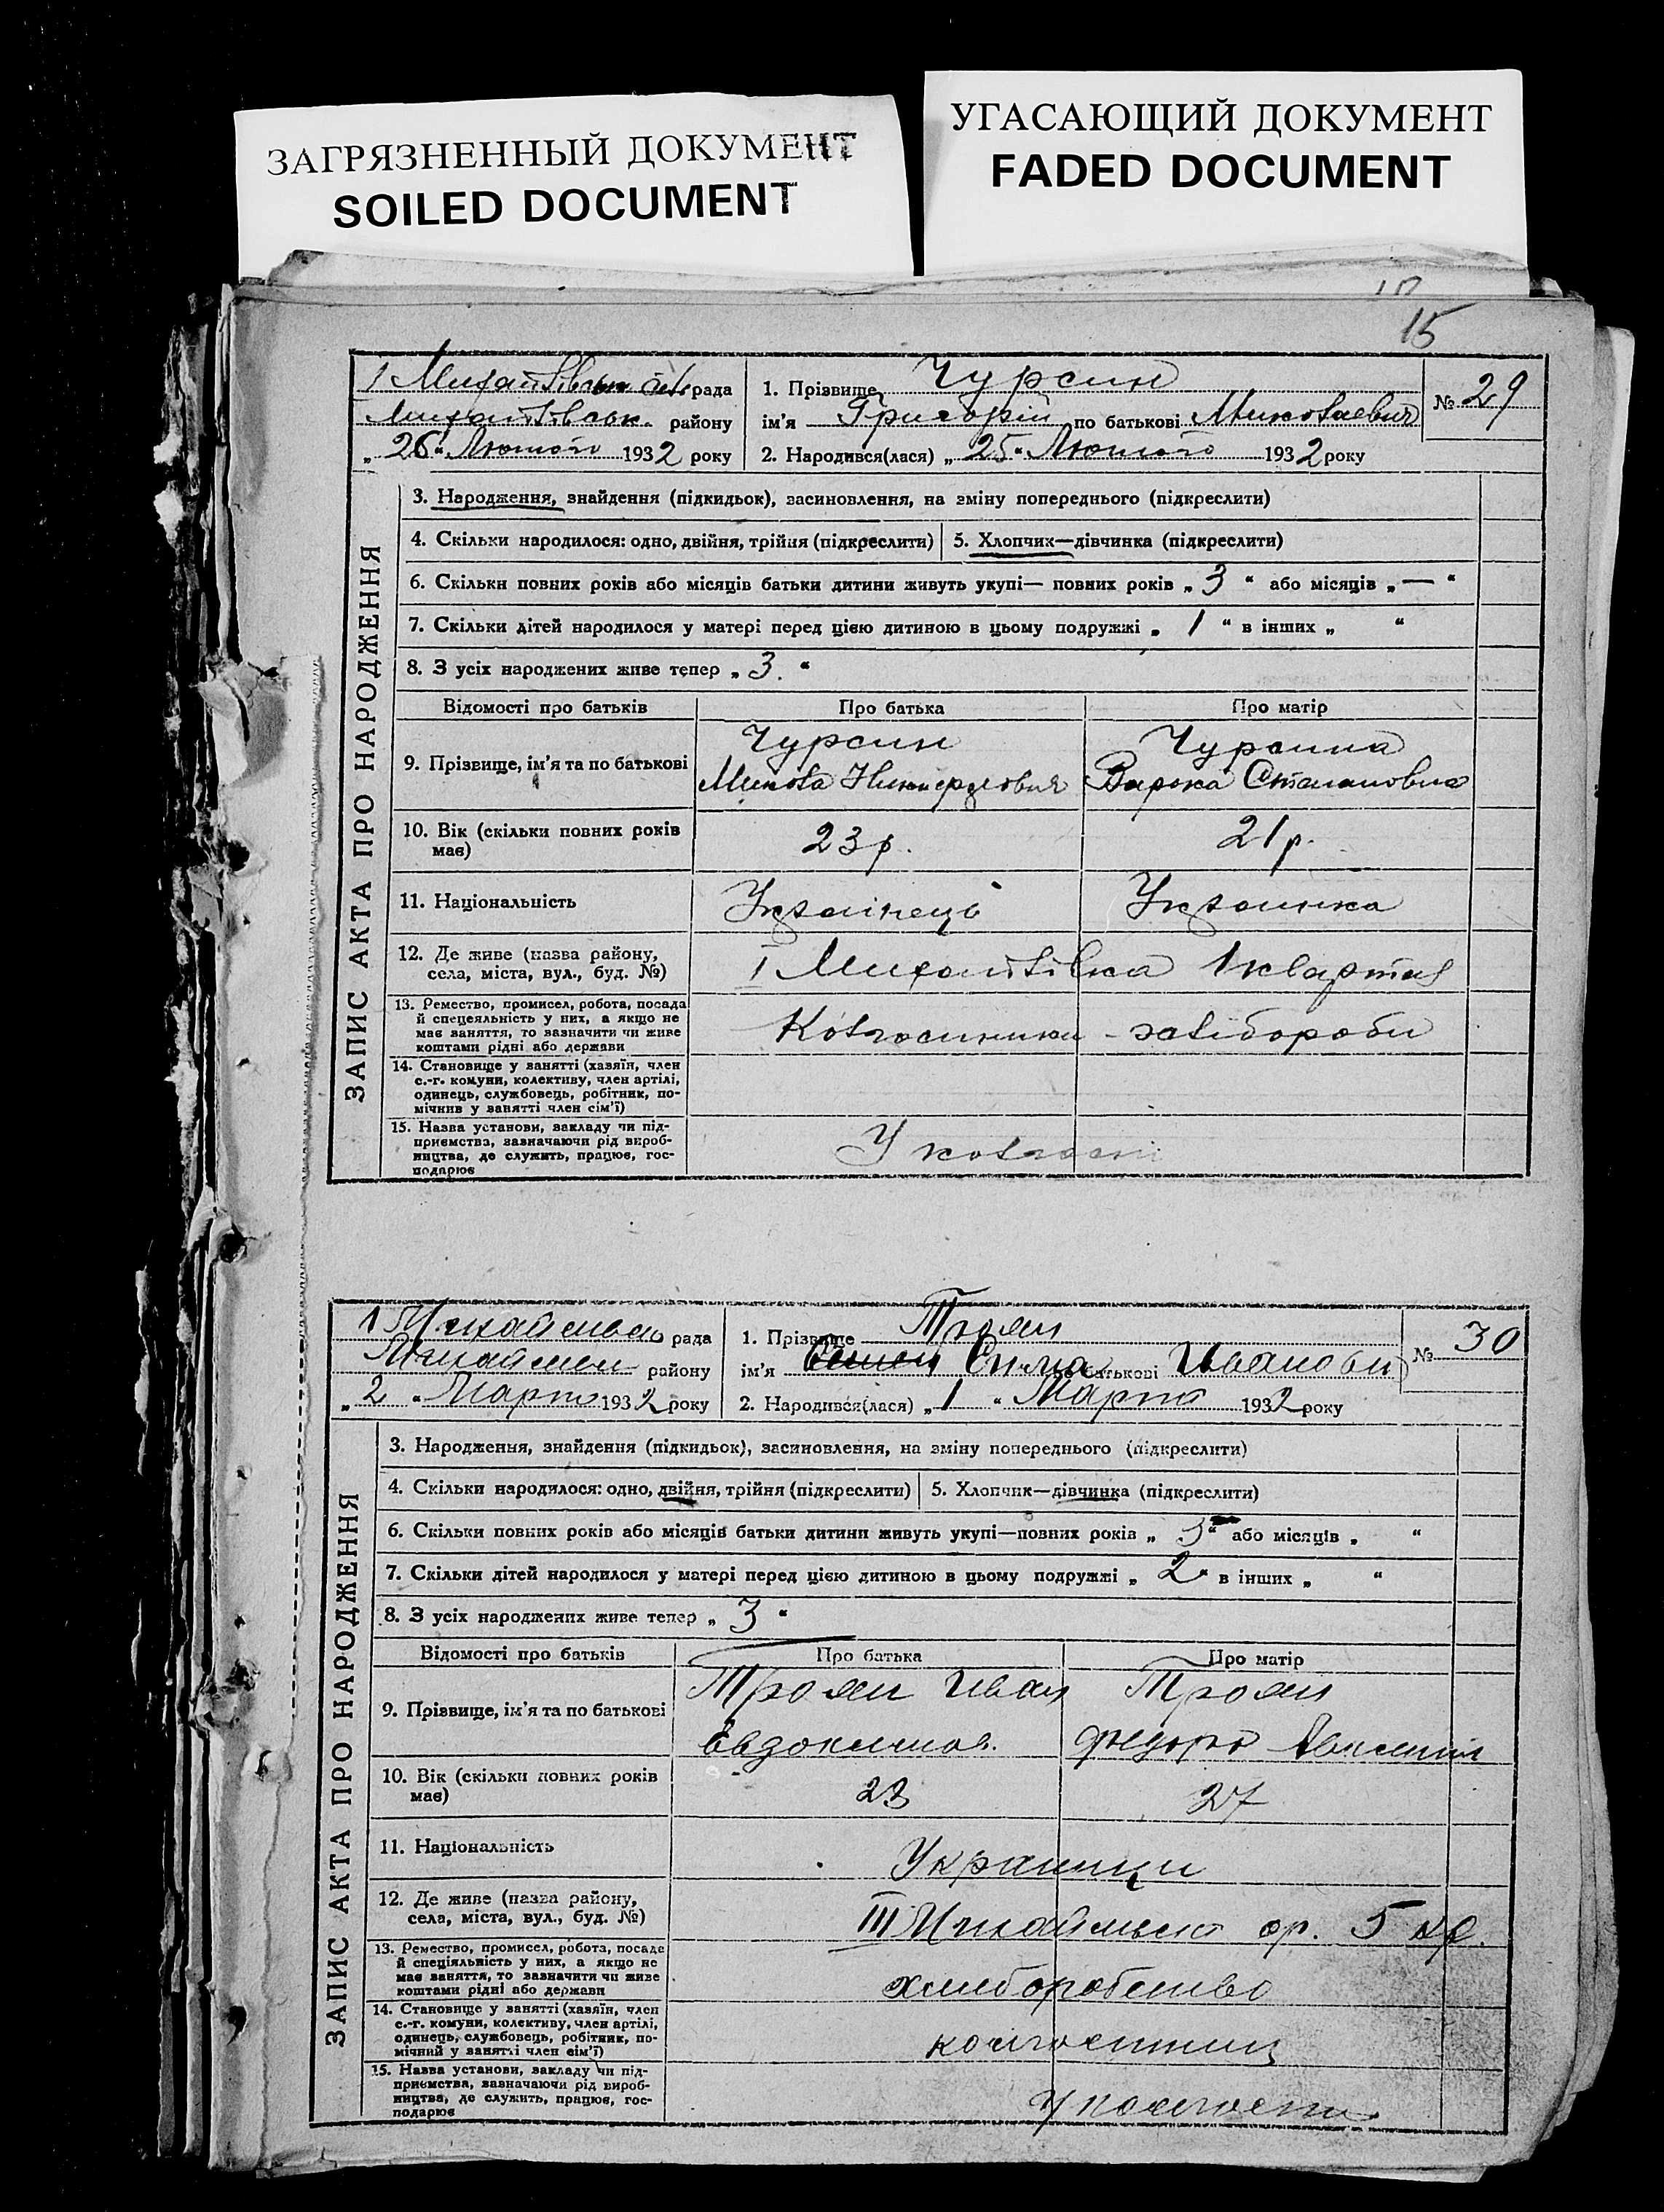 ЗАГРЯЗНЕННЫЙ ДОКУМЕНТ
SOILED DOCUMENT
УГАСАЮЩИЙ ДОКУМЕНТ
FADED DOCUMENT
15
ЗАПИС АКТА ПРО НАРОДЖЕННЯ
рада
району
„ 26 “ Лютого 1932 року
1. Прізвище Чурсин
ім'я Григорій по батькові Миколаевич
2. Народився(лася) „ 25 “ Лютого 1932 року
№ 29
3. Народження, знайдення (підкидьок), засиновлення, на зміну попереднього (підкреслити)
4. Скільки народилося: одно, двійня, трійня (підкреслити) 5. Хлопчик—дівчинка (підкреслити)
6. Скільки повних років або місяців батьки дитини живуть укупі— повних років „ 3 “ або місяців „ — “
7. Скільки дітей народилося у матері перед цією дитиною в цьому подружжі „ 1 “ в інших „ “
8. З усіх народжених живе тепер „ 3. “
Відомості про батьків Про батька Про матір
9. Прізвище, ім'я та по батькові
Чурсин
Микола
Чурсина
Варка Степановна
10. Вік (скільки повних років має) 23 р. 21 р.
11. Національність Українець Українка
12. Де живе (назва району, села, міста, вул., буд. №) I Михайлівка 1 квартал
13. Ремество, промисел, робота, посада й спецеяльність у них, а якщо не має заняття, то зазначити чи живе коштами рідні або держави
Колгоспники - хлібороби
14. Становище у занятті (хазяїн, член с.-г. комуни, колективу, член артілі, одинець, службовець, робітник, помічнив у занятті член сім'ї)
15. Назва установи, закладу чи підприємства, зазначаючи рід виробництва, де служить, працює, господарює
У колгоспі
ЗАПИС АКТА ПРО НАРОДЖЕННЯ
рада
району
„ 2 “ Марта 1932 року
1. Прізвище Троян
ім'я по батькові Иванови
2. Народився(лася) „ 1 “ Марта 1932 року
№ 30
3. Народження, знайдення (підкидьок), засиновлення, на зміну попереднього (підкреслити)
4. Скільки народилося: одно, двійня, трійня (підкреслити) 5. Хлопчик—дівчинка (підкреслити)
6. Скільки повних років або місяців батьки дитини живуть укупі—повних років „ “ або місяців „ “
7. Скільки дітей народилося у матері перед цією дитиною в цьому подружжі „ 2 “ в інших „ “
8. З усіх народжених живе тепер „ 3 “
Відомості про батьків Про батька Про матір
9. Прізвище, ім'я та по батькові
Троян Иван
Евдокимов.
Троян
10. Вік (скільки повних років має) 23 27
11. Національність Украинци
12. Де живе (назва району, села, міста, вул., буд. №) III 5 кв.
13. Ремество, промисел, робота, посада й спеціяльність у них, а якщо не має заняття, то зазначити чи живе коштами рідні або держави
хлеборобство
14. Становище у занятті (хазяїн, член с.-г. комуни, колективу, член артілі, одинець, службовець, робітник, помічний у занятті член сім'ї)
15. Назва установи, закладу чи підприємства, зазначаючи рід виробництва, де служить, працює, господарює
У колгоспи